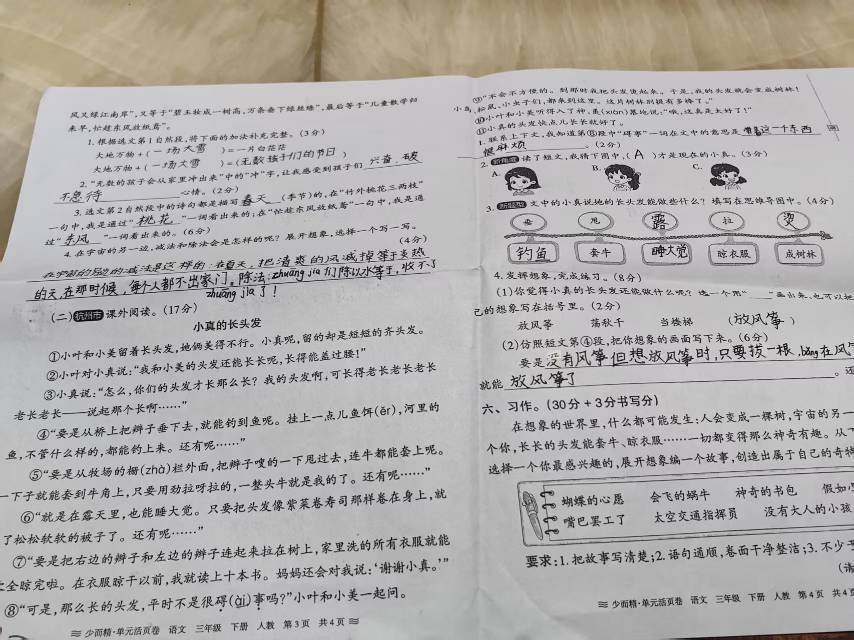 风又绿江南岸”,又等于“碧玉妆成一树高,万条垂下绿丝绦”,最后等于“儿童散学归
来早,忙趁东风放纸鸢”。
1.根据选文第1自然段,将下面的加法补充完整。(3分)
大地万物+(一场大雪)=一片白茫茫
大地万物+(一场大雪)=(无数孩子们的节日)
2.“无数的孩子会从家里冲出来”中的“冲”字,让我感受到孩子们 兴奋、破
不急待 心情。(2分)
3.选文第2自然段中的诗句都是描写 春天 (季节)的,在“竹外桃花三两枝”
一句中,我是通过“ 桃花 ”一词看出来的;在“忙趁东风放纸鸢”一句中,我是通
过“ 东风 ”一词看出来的。(6分)
4.在宇宙的另一边,减法和除法会是怎样的呢?展开想象,选择一个写一写。
(4分)
在宇宙的另一边的减法是这样的:在夏天,把清爽的风减掉等于炎热
的天,在那时候,每个人都不出家门。除法:zhuāng jia 们除以水等于,收不了
zhuāng jia了!
(二)杭州市 课外阅读。(17分)
小真的长头发
①小叶和小美留着长头发,她俩美得不行。小真呢,留的却是短短的齐头发。
②小叶对小真说:“我和小美的头发还能长长呢,长得能盖过腰!”
③小真说:“怎么,你们的头发才长那么长?我的头发啊,可长得老长老长
老长老长——说起那个长啊……”
④“要是从桥上把辫子垂下去,就能钓到鱼呢。挂上一点儿鱼饵(ěr),河里的
鱼,不管什么样的,都能钓上来。还有呢……”
⑤“要是从牧场的栅(zhà)栏外面,把辫子嗖的一下甩过去,连牛都能套上呢。
一下子就能套到牛角上,只要用劲拉呀拉的,一整头牛就是我的了。还有呢……”
⑥“就是在露天里,也能睡大觉。只要把头发像紫菜卷寿司那样卷在身上,就
了松松软软的被子了。还有呢……”
⑦“要是把右边的辫子和左边的辫子连起来拉在树上,家里洗的所有衣服就能
全晾完啦。在衣服晾干以前,我就读上十本书。妈妈还会对我说:‘谢谢小真。’”
⑧“可是,那么长的头发,平时不是很碍(ài)事吗?”小叶和小美一起问。
少而精·单元活页卷 语文 三年级 下册 人教 第3页 共4页
⑨“不会不方便的。到那时我把头发烫起来。于是,我的头发就会变成树林!
小鸟、松鼠、小虫子们,都来到这里。这片树林别提有多棒了。”
⑩小叶和小美听得入了神,羡(xiàn)慕地说:“哦,这真是太好了!”
⑪小真的头发快点儿长长就好了。
1.联系上下文,我知道第⑧段中“碍事”一词在文中的意思是 这一个东西
很麻烦 。(2分)
2.新角度 读了短文,我猜下图中,( A )才是现在的小真。(3分)
A.
B.
C.
3.新题型 文中的小真说她的长头发能做些什么?填写在思维导图中。(4分)
垂 甩 露 拉 烫
钓鱼 套牛 睡大觉 晾衣服 成树林
4.发挥想象,完成练习。(8分)
(1)你觉得小真的长头发还能做什么呢?选一个用“____”画出来,也可以把
己的想象写在括号里。(2分)
放风筝 荡秋千 当楼梯 (放风筝)
(2)仿照短文第④段,把你想象的画面写下来。(6分)
要是 没有风筝但想放风筝时,只要拔一根,bǎng在风
就能 放风筝了 。还
六、习作。(30分+3分书写分)
在想象的世界里,什么都可能发生:人会变成一棵树,宇宙的另一
个你,长长的头发能套牛、晾衣服……一切都变得那么神奇有趣。从下
选择一个你最感兴趣的,展开想象编一个故事,创造出属于自己的奇特
蝴蝶的心愿 会飞的蜗牛 神奇的书包 假如
嘴巴罢工了 太空交通指挥员 没有大人的小孩
要求:1.把故事写清楚;2.语句通顺,卷面干净整洁;3.不少于
少而精·单元活页卷 语文 三年级 下册 人教 第4页 共4页